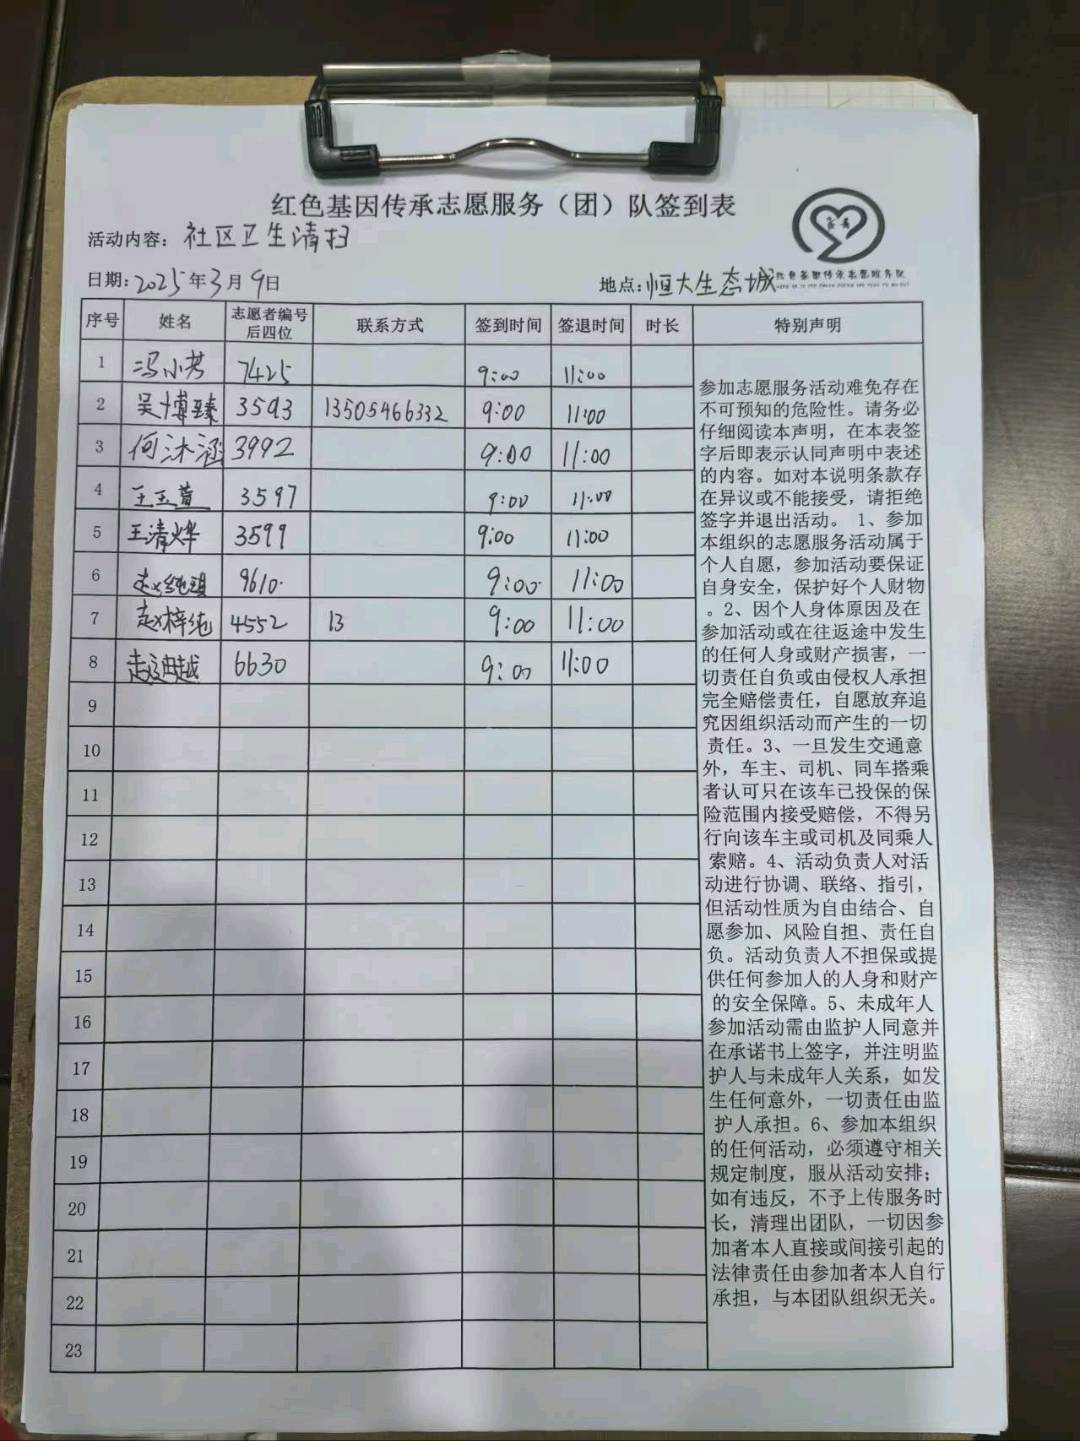 红色基因传承志愿服务（团）队签到表
活动内容：社区卫生清扫
日期：2025年3月9日 地点：恒大生态城
序号 姓名 志愿者编号后四位 联系方式 签到时间 签退时间 时长 特别声明
1 冯小芳 7425 9:00 11:00
2 吴博臻 3593 13505466332 9:00 11:00
3 何沐涵 3992 9:00 11:00
4 王玉萱 3597 9:00 11:00
5 王清烨 3599 9:00 11:00
6 赵纯琪 9610 9:00 11:00
7 赵梓纯 4552 13 9:00 11:00
8 6630 9:00 11:00
9
10
11
12
13
14
15
16
17
18
19
20
21
22
23
参加志愿服务活动难免存在
不可预知的危险性。请务必
仔细阅读本声明，在本表签
字后即表示认同声明中表述
的内容。如对本说明条款存
在异议或不能接受，请拒绝
签字并退出活动。1、参加
本组织的志愿服务活动属于
个人自愿，参加活动要保证
自身安全，保护好个人财物
。2、因个人身体原因及在
参加活动或在往返途中发生
的任何人身或财产损害，一
切责任自负或由侵权人承担
完全赔偿责任，自愿放弃追
究因组织活动而产生的一切
责任。3、一旦发生交通意
外，车主、司机、同车搭乘
者认可只在该车已投保的保
险范围内接受赔偿，不得另
行向该车主或司机及同乘人
索赔。4、活动负责人对活
动进行协调、联络、指引，
但活动性质为自由结合、自
愿参加、风险自担、责任自
负。活动负责人不担保或提
供任何参加人的人身和财产
的安全保障。5、未成年人
参加活动需由监护人同意并
在承诺书上签字，并注明监
护人与未成年人关系，如发
生任何意外，一切责任由监
护人承担。6、参加本组织
的任何活动，必须遵守相关
规定制度，服从活动安排；
如有违反，不予上传服务时
长，清理出团队，一切因参
加者本人直接或间接引起的
法律责任由参加者本人自行
承担，与本团队组织无关。